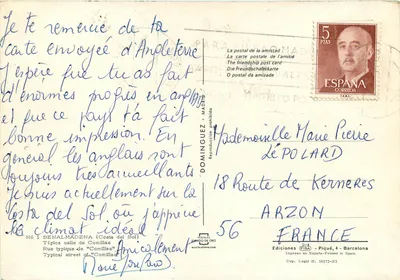 Je te remercie de ta
carte envoyée d'Angleterre
J'espère que tu as fait
d'énormes progrès en anglais
et que ce pays t'a fait
bonne impression. En
général les anglais sont
toujours très accueillants
Je suis actuellement sur la
Costa del Sol, où j'apprécie
le climat idéal
Amicalement
BENALMADENA (Costa del Sol)
Típica calle de
Rue typique de
Typical street of
DOMINGUEZ
La postal de la amistad
La carte postale de l'amitié
The friendship post card
Die Freundschaftskarte
O postal da amizade
5
PTAS
ESPAÑA
CORREOS
Mademoiselle Marie Pierre
LE POLARD
18 Route de Kerners
ARZON
56
FRANCE
Ediciones
Piqué, 4 - Barcelona